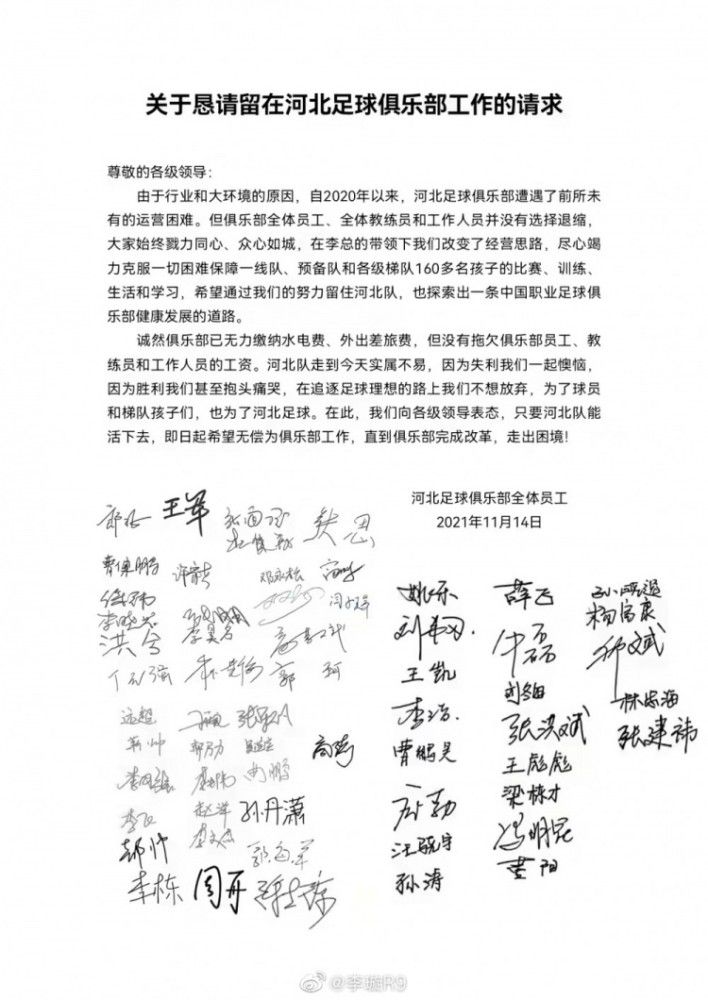 关于恳请留在河北足球俱乐部工作的请求
尊敬的各级领导：
由于行业和大环境的原因，自2020年以来，河北足球俱乐部遭遇了前所未
有的运营困难。但俱乐部全体员工、全体教练员和工作人员并没有选择退缩，
大家始终戮力同心、众心如城，在李总的带领下我们改变了经营思路，尽心竭
力克服一切困难保障一线队、预备队和各级梯队160多名孩子的比赛、训练、
生活和学习，希望通过我们的努力留住河北队，也探索出一条中国职业足球俱
乐部健康发展的道路。
诚然俱乐部已无力缴纳水电费、外出差旅费，但没有拖欠俱乐部员工、教
练员和工作人员的工资。河北队走到今天实属不易，因为失利我们一起懊恼，
因为胜利我们甚至抱头痛哭，在追逐足球理想的路上我们不想放弃，为了球员
和梯队孩子们，也为了河北足球。在此，我们向各级领导表态，只要河北队能
活下去，即日起希望无偿为俱乐部工作，直到俱乐部完成改革，走出困境！
河北足球俱乐部全体员工
2021年11月14日
王军
洪兮
郭珂
姚乐
薛飞
杨富康
王凯
李浩
张洪斌
林忠海
张建祎
曹鹏昊
王彪彪
梁栋才
汪骁宇
冯明昆
孙涛
黄阳
高嵩
孙丹潇
郝帅
李栋
周开
@李璇R9